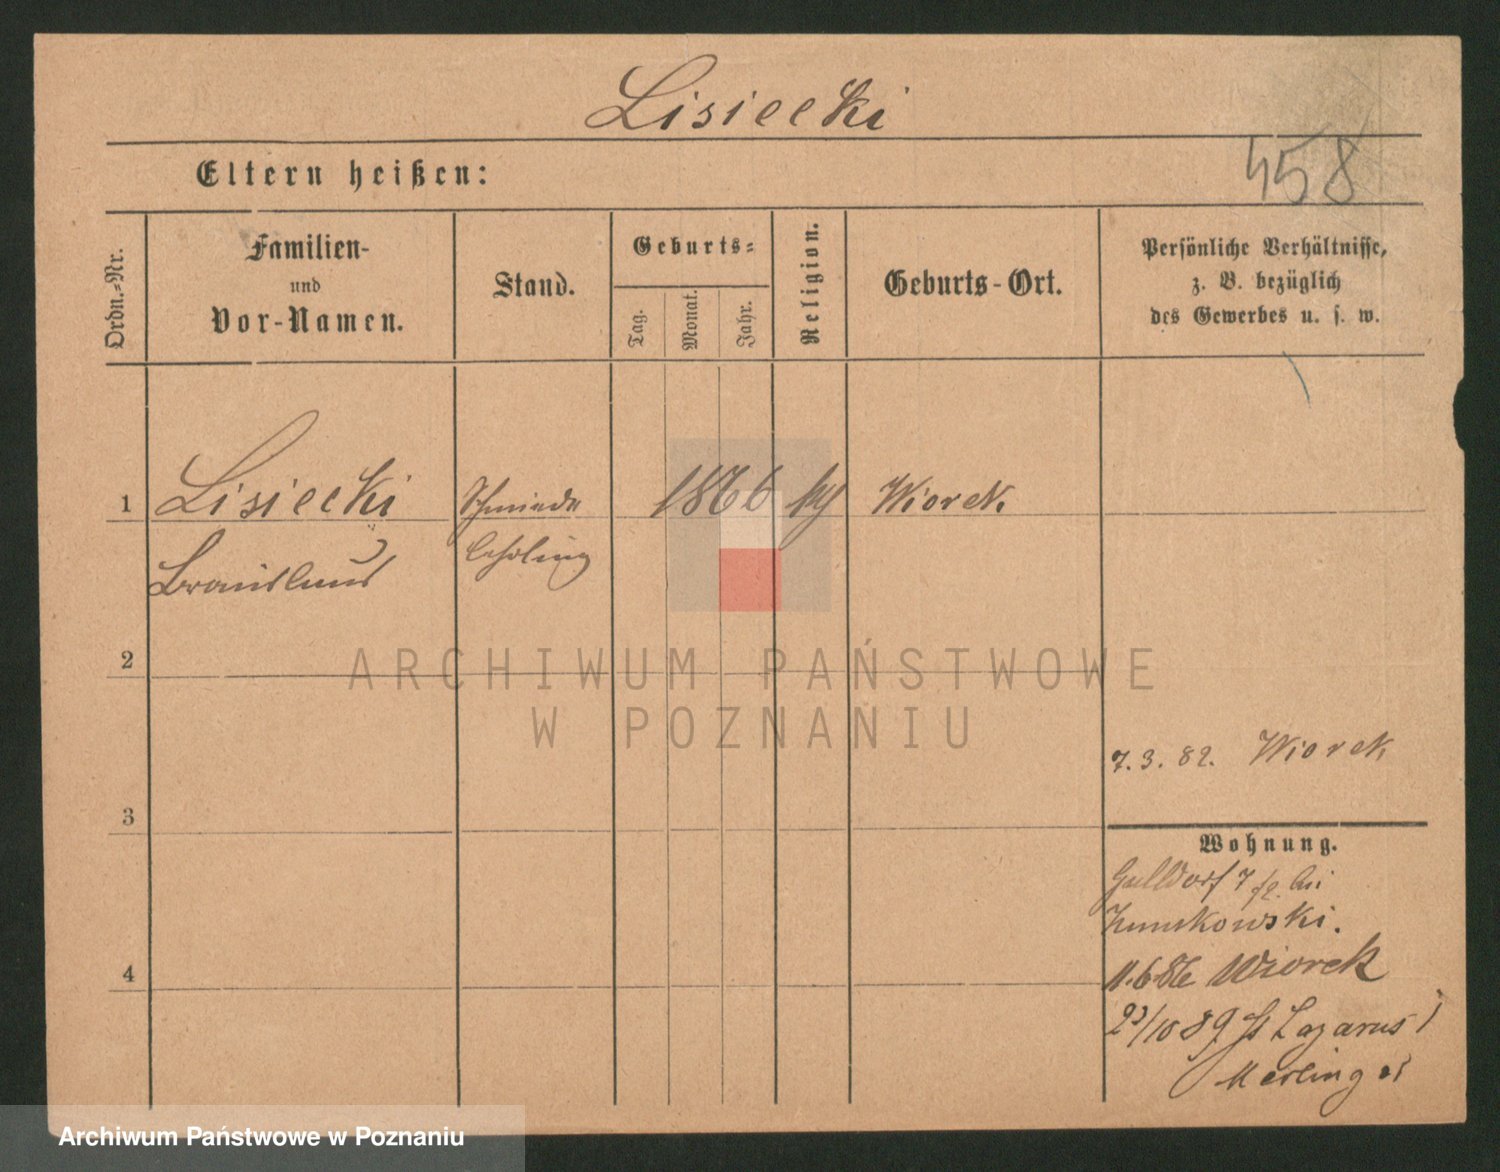 Lisiecki
458
Eltern heißen:
Ordn.-Nr.
Familien-
und
Vor-Namen.
Stand.
Geburts-
Tag.
Monat.
Jahr.
Religion.
Geburts-Ort.
Persönliche Verhältnisse,
z. B. bezüglich
des Gewerbes u. s. w.
1 Lisiecki Schmiede 1866 Wiorek
Bronislaus lehrling
2
ARCHIWUM PAŃSTWOWE
W POZNANIU
7.3.82. Wiorek
3
Wohnung.
7 bei
4
11.6.86 Wiorek
23/10 89 St Lazarus
Archiwum Państwowe w Poznaniu